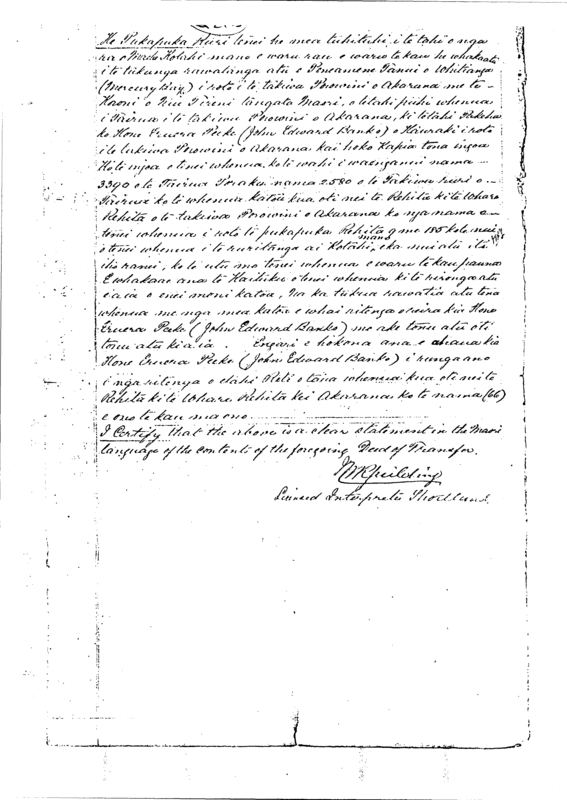 He Pukapuka tuuri tenei he mea tuhituhi i te tahi o nga
ra o Kotahi mano e waru rau e waru te kau he whakaatu
i te tukunga rawatanga atu e Peneamene Tanui o Whitianga
(Mercury Bay) i roto i te takiwa Porowini o Akarana me te
Koroni o Niu Tireni tangata Maori, o tetahi pihi whenua
i Tairua i te takiwa Porowini o Akarana, ki tetahi Pakeha
ko Hone Eruera Peeke (John Edward Banks) o Hauraki i roto
i te takiwa Porowini o Akarana kai hoko Kapia tona ingoa
Ko te ingoa o tenei whenua, ko te wahi i waenganui nama
3390 o te Tairua Poraka nama 2580 o te Takiwa ruri o
Tairua ko te whenua katoa kua oti nei te Rehita ki te Whare
Rehita o te takiwa Porowini o Akarana ko nga nama o
tenei whenua i roto i te pukapuka Rehita 9 me 185 ko te nui
o tenei whenua i te ruritanga ai Kotahi mano, eka mui atu i te
iti ranei, ko te utu mo tenei whenua e waru te kau pauna
E whakaae ana te Kaituku o tenei whenua ki te rironga atu
i a ia o enei moni katoa, Na ka tukua rawatia atu tena
whenua me nga mea katoa e whai ritenga o reira kia Hone
Eruera Peeke (John Edward Banks) me ake tonu atu oti
tonu atu ki a ia. Engari e hokona ana e kia
Hone Eruera Peeke (John Edward Banks) i runga ano
i nga ritenga o etahi Reti o taua whenua kua oti nei te
Rehita ki te Whare Rehita kei Akarana ko te nama (66)
e ono te kau ma ono.
I Certify that the above is a clear statement in the Maori
language of the contents of the foregoing Deed of Transfer.
Licensed Interpreter Shortland